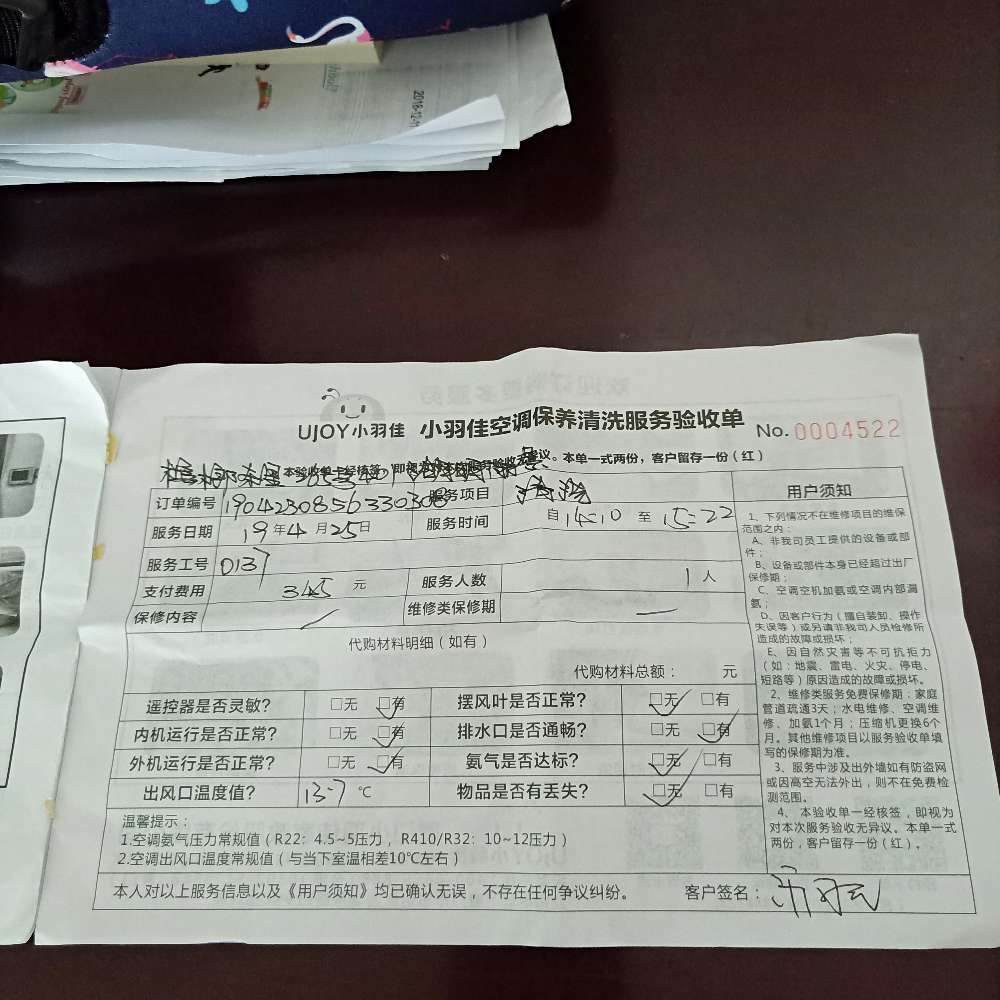 2018-12-11
UJOY小羽佳 小羽佳空调保养清洗服务验收单 No.0004522
本验收单一经核签，即视为对本次服务验收无异议。本单一式两份，客户留存一份（红）
订单编号 1904230856330308 服务项目 清洗
服务日期 19年4月25日 服务时间 自14:10至15:22
服务工号 0137
支付费用 345元 服务人数 1人
保修内容 / 维修类保修期 —
代购材料明细（如有）
代购材料总额： 元
遥控器是否灵敏？ □无 □有 摆风叶是否正常？ □无 □有
内机运行是否正常？ □无 □有 排水口是否通畅？ □无 □有
外机运行是否正常？ □无 □有 氨气是否达标？ □无 □有
出风口温度值？ 13-7℃ 物品是否有丢失？ □无 □有
温馨提示：
1.空调氨气压力常规值（R22：4.5~5压力，R410/R32：10~12压力）
2.空调出风口温度常规值（与当下室温相差10℃左右）
本人对以上服务信息以及《用户须知》均已确认无误，不存在任何争议纠纷。 客户签名：
用户须知
1、下列情况不在维修项目的维保
范围之内：
A、非我司员工提供的设备或部
件；
B、设备或部件本身已经超过出厂
保修期；
C、空调空机加氨或空调内部漏
氨；
D、因客户行为（擅自装卸、操作
失误等）或另请非我司人员检修所
造成的故障或损坏；
E、因自然灾害等不可抗拒力
（如：地震、雷电、火灾、停电、
短路等）原因造成的故障或损坏。
2、维修类服务免费保修期：家庭
管道疏通3天；水电维修、空调维
修、加氨1个月；压缩机更换6个
月。其他维修项目以服务验收单填
写的保修期为准。
3、服务中涉及出外墙如有防盗网
或因高空无法外出，则不在免费检
测范围。
4、本验收单一经核签，即视为
对本次服务验收无异议。本单一式
两份，客户留存一份（红）。